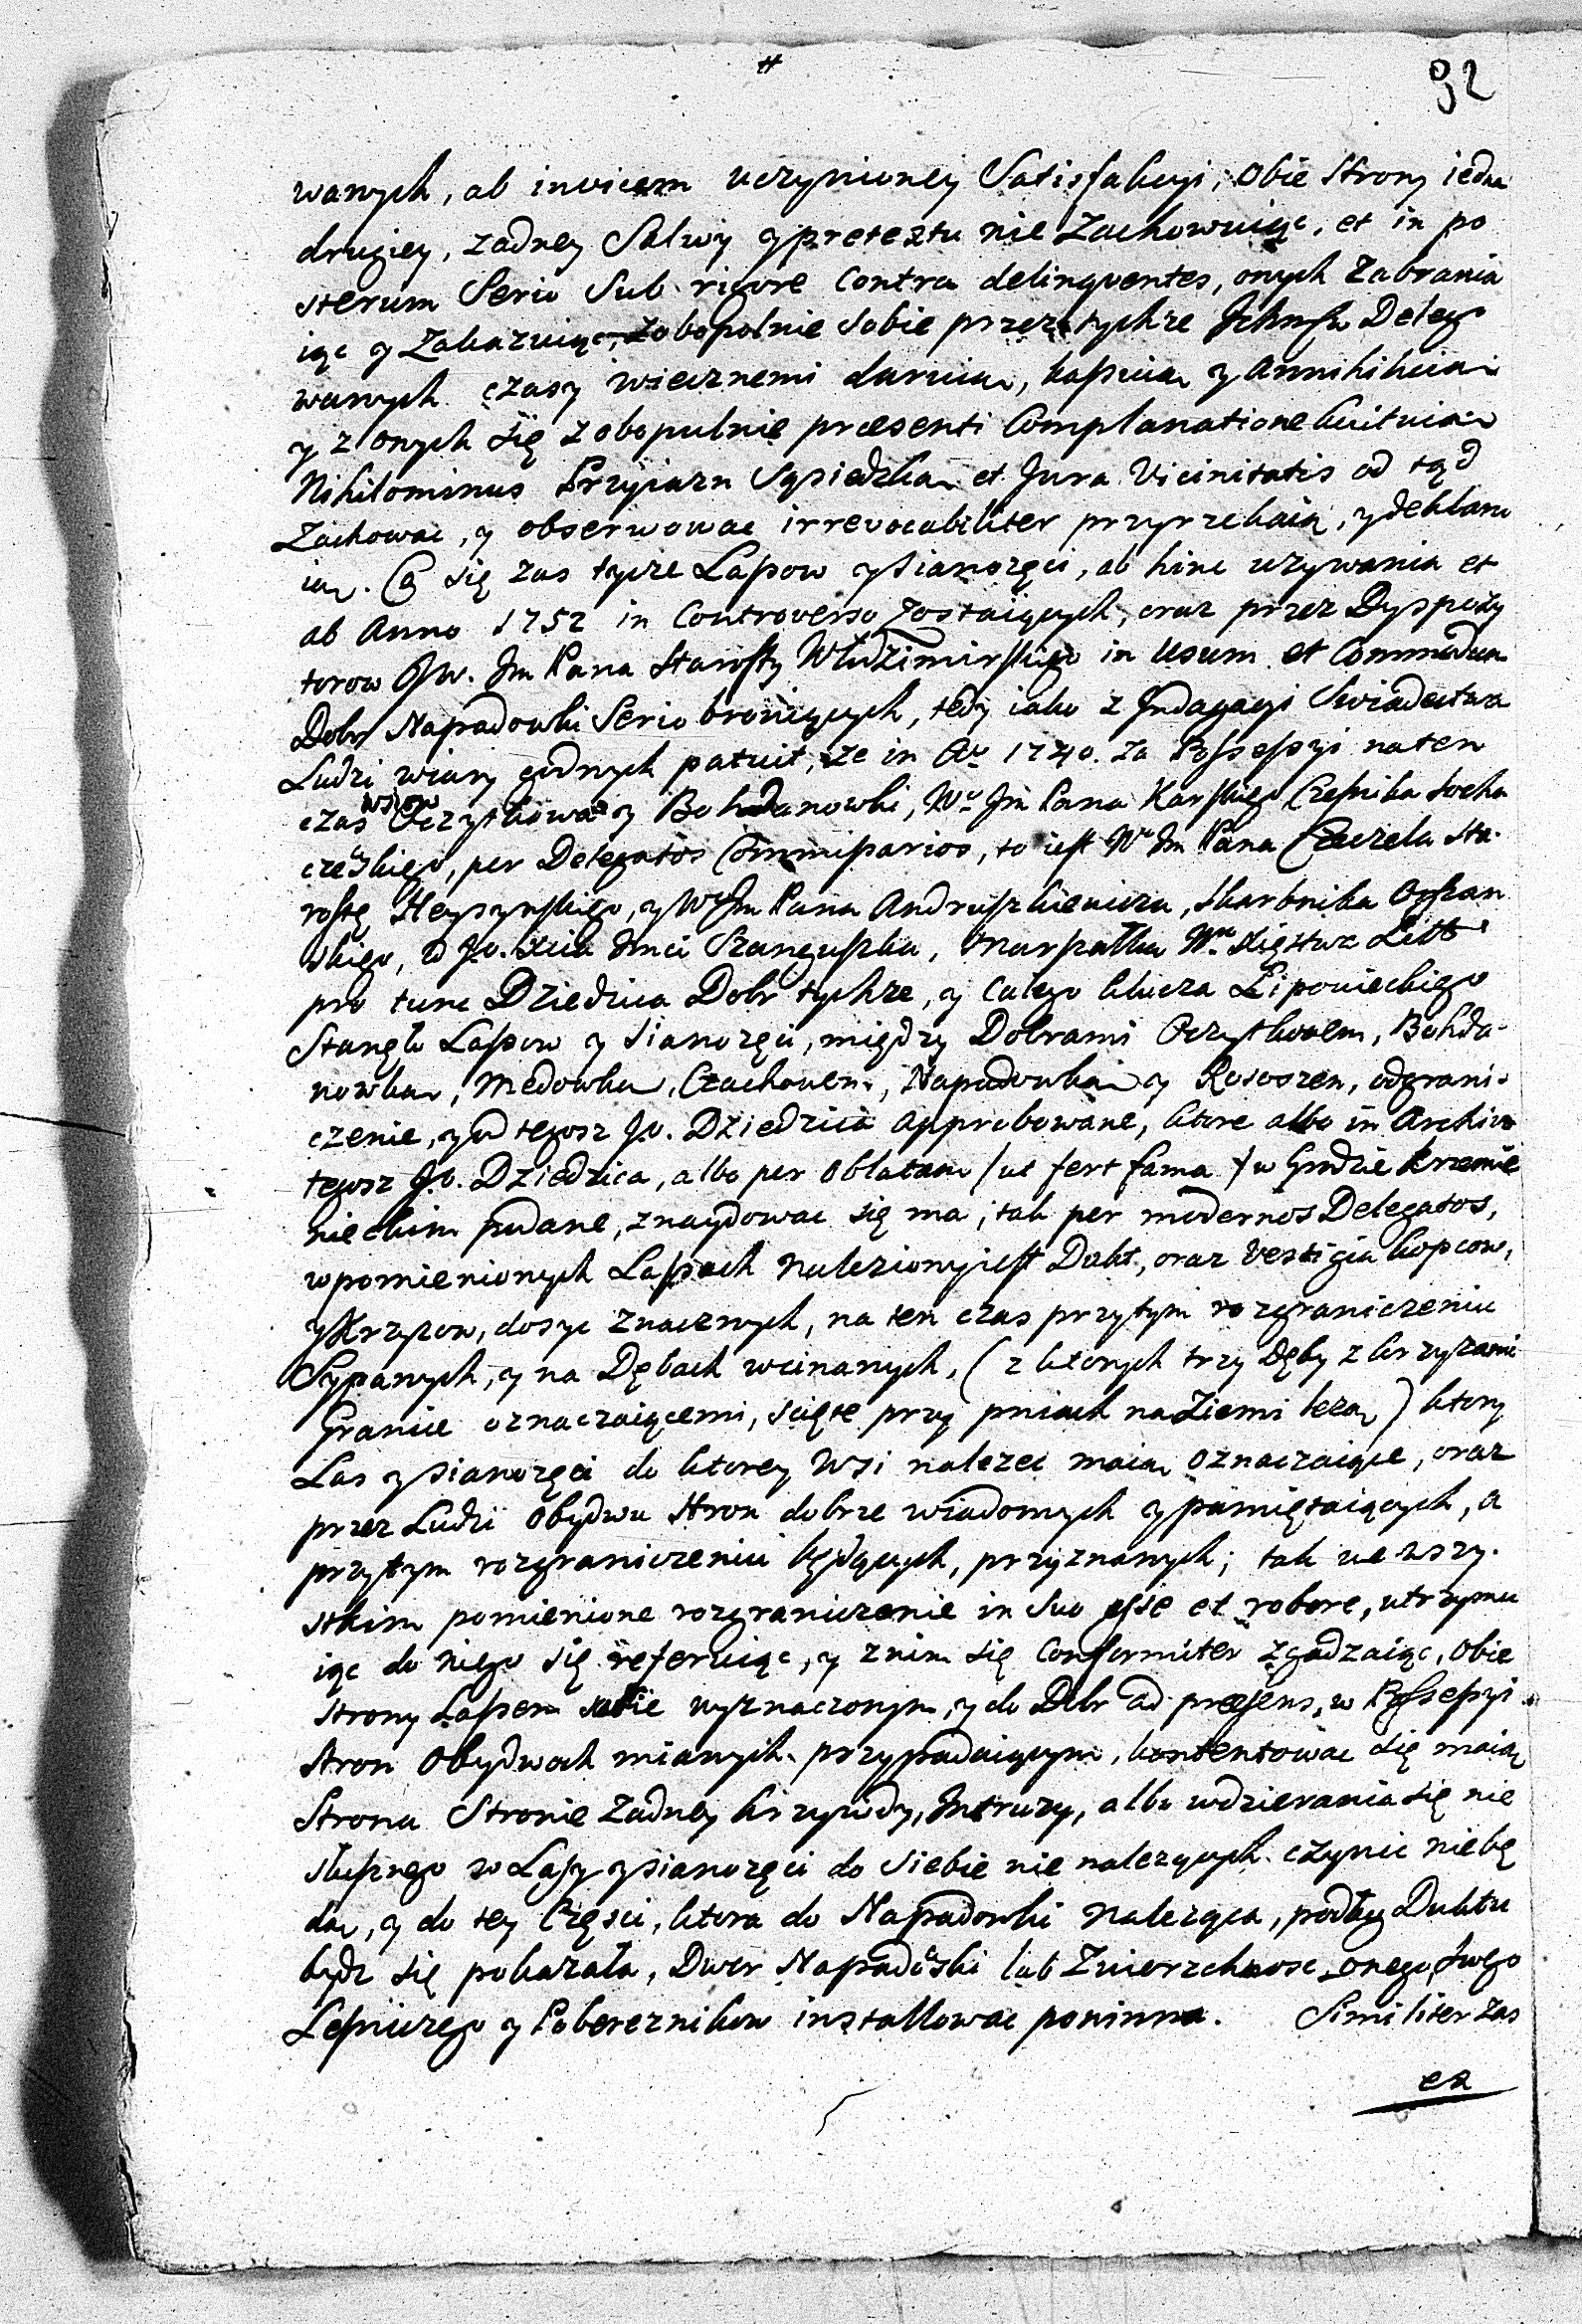 92
wanych, ab invicem uczynioney Satisfakcyi, Obie Strony iedna
drugiey, zadney Salwy y pretextu nie Zachowuiąc, et in po
sterum Serio Sub rigore Contra delinqventes, onych Zabrania
iąc y Zakazuiąc, Zobopolnie Sobie przez tychze Delego
wanych czasy wiecznemi daruią, kassuią y Annihiluią
y z onych się zobopulnie præsenti Complanatione kwituią
Nihilominus Przyiazn Sąsiedzką et Jura Vicinitatis od tąd
Zachowac, y obserwowac irrevocabiliter przyrzekaią, y deklaru
ią. Co się zas tycze Lasow y sianozęci, ab hinc uzywania et
ab Anno 1752 in Controverso Zostaiących, oraz przez Dyspozy
torow JW. Jm Pana Starosty Włodzimirskiego in Usum et Commodum
Dobr Napadowki Serio broniących, tedy iako z Jndagacyi Swiadectwa
Ludzi wiary godnych patuit, ze in Ao 1740. za Possessyi na ten
czas wsiow Oczytkowa y Bohdanowki, Wo Jm Pana Karskiego Czesnika Socha
czewskiego, per Delegatos Commissarios, to iest Wo Jm Pana Sta-
rostę y Wo Jm Pana Andruszkiewicza, Skarbnika
skiego, od Jo. Xcia Jmci Szanguszka, Marszałka Wo Xięstwa Litto
pro tunc Dziedzica Dobr tychze, y całego klucza Lipowieckiego
Stanęło Lasow y sianozęci, między Dobrami Oczytkowem, Bohda-
nowką, Medowką, Czachowem, Napadowką y Rososzem, odgrani-
czenie, y od tegosz Jo. Dziedzica Approbowane, ktore albo in Archivo
tegosz Jo. Dziedzica, albo per Oblatam /ut fert fama/ w Grodzie Krzemie
nieckim podane, znaydowac się ma; tak per modernos Delegatos,
wpomienionych Lasach Naleziony iest Dukt, oraz Vestigia kopcow,
y Krzyzow, dosyc znacznych, na ten czas przytym rozgraniczeniu
Sypanych, y na Dębach wcinanych, (z ktorych trzy dęby z krzyzami
Granice oznaczaiącemi, scięte przy pniach na Ziemi lezą) ktory
Las y sianozęci do ktorey Wsi nalezec maią oznaczaiące, oraz
przez Ludzi Obydwu Stron dobrze wiadomych y pamiętaiących, a
przytym rozgraniczeniu będących, przyznanych; tak we wszy-
stkim pomienione rozgraniczenie in Suo esse et robore, utrzymu
iąc do niego się referuiąc, y znim się Conformiter zgadzaiąc, Obie
Strony Lasem sobie wyznaczonym, y do Dobr ad præsens, w Possessyi
Stron Obydwoch mianych przypadaiącym, kontentowac się maią
Strona Stronie Zadney krzywdy, Jntruzy, albo wdzierania się nie
słusznego w Lasy y sianozęci do Siebie nie nalezących czynic niebę
dą, y do tey Częsci, ktora do Napadowki Naleząca, podług Duktu
bydz się pokazała, Dwor Napadowski lub Zwierzchnosc onego, swego
Lesniczego y Pobereznikow installowac powinna. Similiter zas
ex